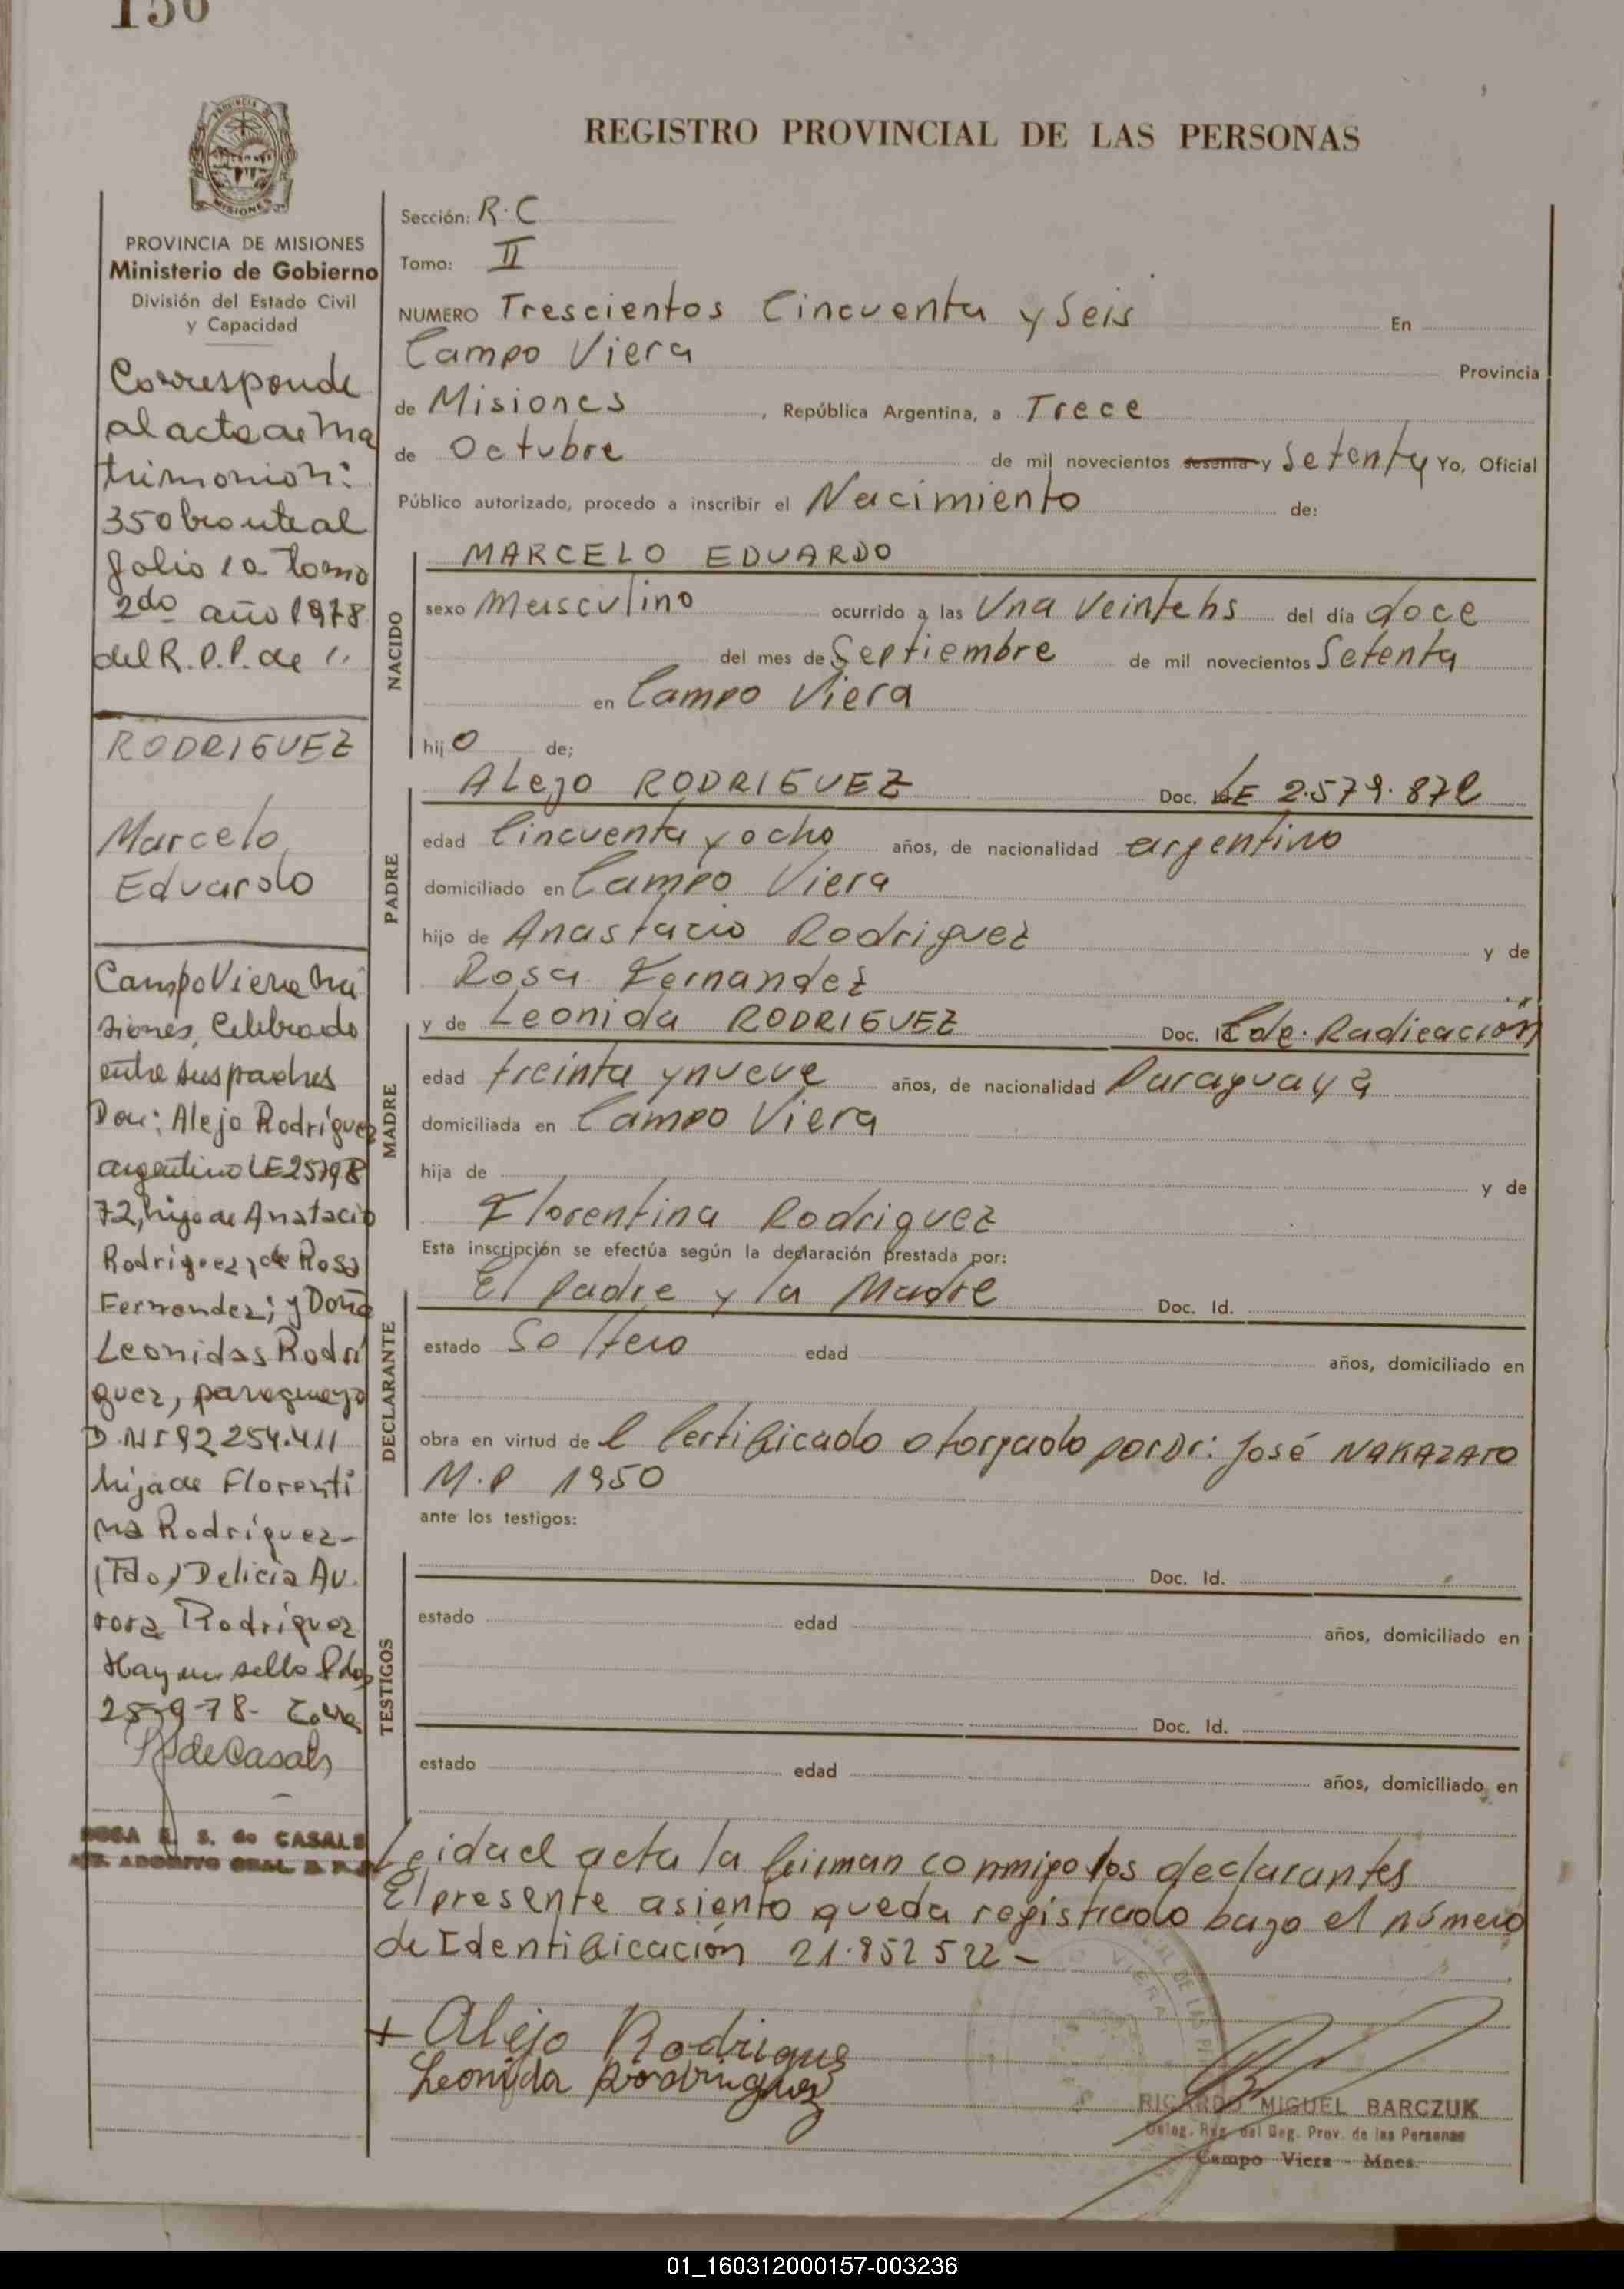 156
REGISTRO PROVINCIAL DE LAS PERSONAS
MISIONES
PROVINCIA DE MISIONES
Ministerio de Gobierno
División del Estado Civil
y Capacidad
Corresponde
al acta de Ma
trimonio n:
350 obrante al
folio 10 tomo
2do año 1978
del R.P.P. de
RODRIGUEZ
Marcelo
Eduardo
Campo Viera Mi
siones, Celebrado
entre sus padres
Don: Alejo Rodríguez
argentino LE 25798
72, hijo de Anatacio
Rodriguez y de Rosa
Fernandez; y Doña
Leonidas Rodrí
guez, paraguaya
DNI 92 254.411
hija de Florenti
na Rodríguez-
(Fdo) Delicia Au.
rora Rodríguez
Hay un sello Pdas
25-9-78-
de Casals
ROSA E. S. de CASALS
Sección: R.C
Tomo: II
NUMERO Trescientos Cincuenta y Seis En
Campo Viera Provincia
de Misiones, República Argentina, a Trece
de Octubre de mil novecientos sesenta y Setenta Yo, Oficial
Público autorizado, procedo a inscribir el Nacimiento de:
NACIDO
MARCELO EDUARDO
sexo Masculino ocurrido a las Una Veinte hs del día doce
del mes de Septiembre de mil novecientos Setenta
en Campo Viera
hijo de;
PADRE
Alejo RODRIGUEZ Doc. LE 2.579.872
edad Cincuenta y ocho años, de nacionalidad argentino
domiciliado en Campo Viera
hijo de Anastacio Rodriguez y de
Rosa Fernandez
MADRE
y de Leonida RODRIGUEZ Doc. Cde. Radicación
edad treinta y nueve años, de nacionalidad Paraguaya
domiciliada en Campo Viera
hija de y de
Florentina Rodriguez
Esta inscripción se efectúa según la declaración prestada por:
DECLARANTE
El Padre y la Madre Doc. Id.
estado Soltero edad años, domiciliado en
obra en virtud de l Certificado otorgado por Dr: José NAKAZATO
M.P 1950
ante los testigos:
TESTIGOS
Doc. Id.
estado edad años, domiciliado en
Doc. Id.
estado edad años, domiciliado en
Leida el acta la firman conmigo los declarantes
El presente asiento queda registrado bajo el número
de Identificación 21.852 522-
+ Alejo Rodrigues
Leonida Rodriguez
RICARDO MIGUEL BARCZUK
Deleg. Reg. del Reg. Prov. de las Personas
Campo Viera - Mnes.
01_160312000157-003236